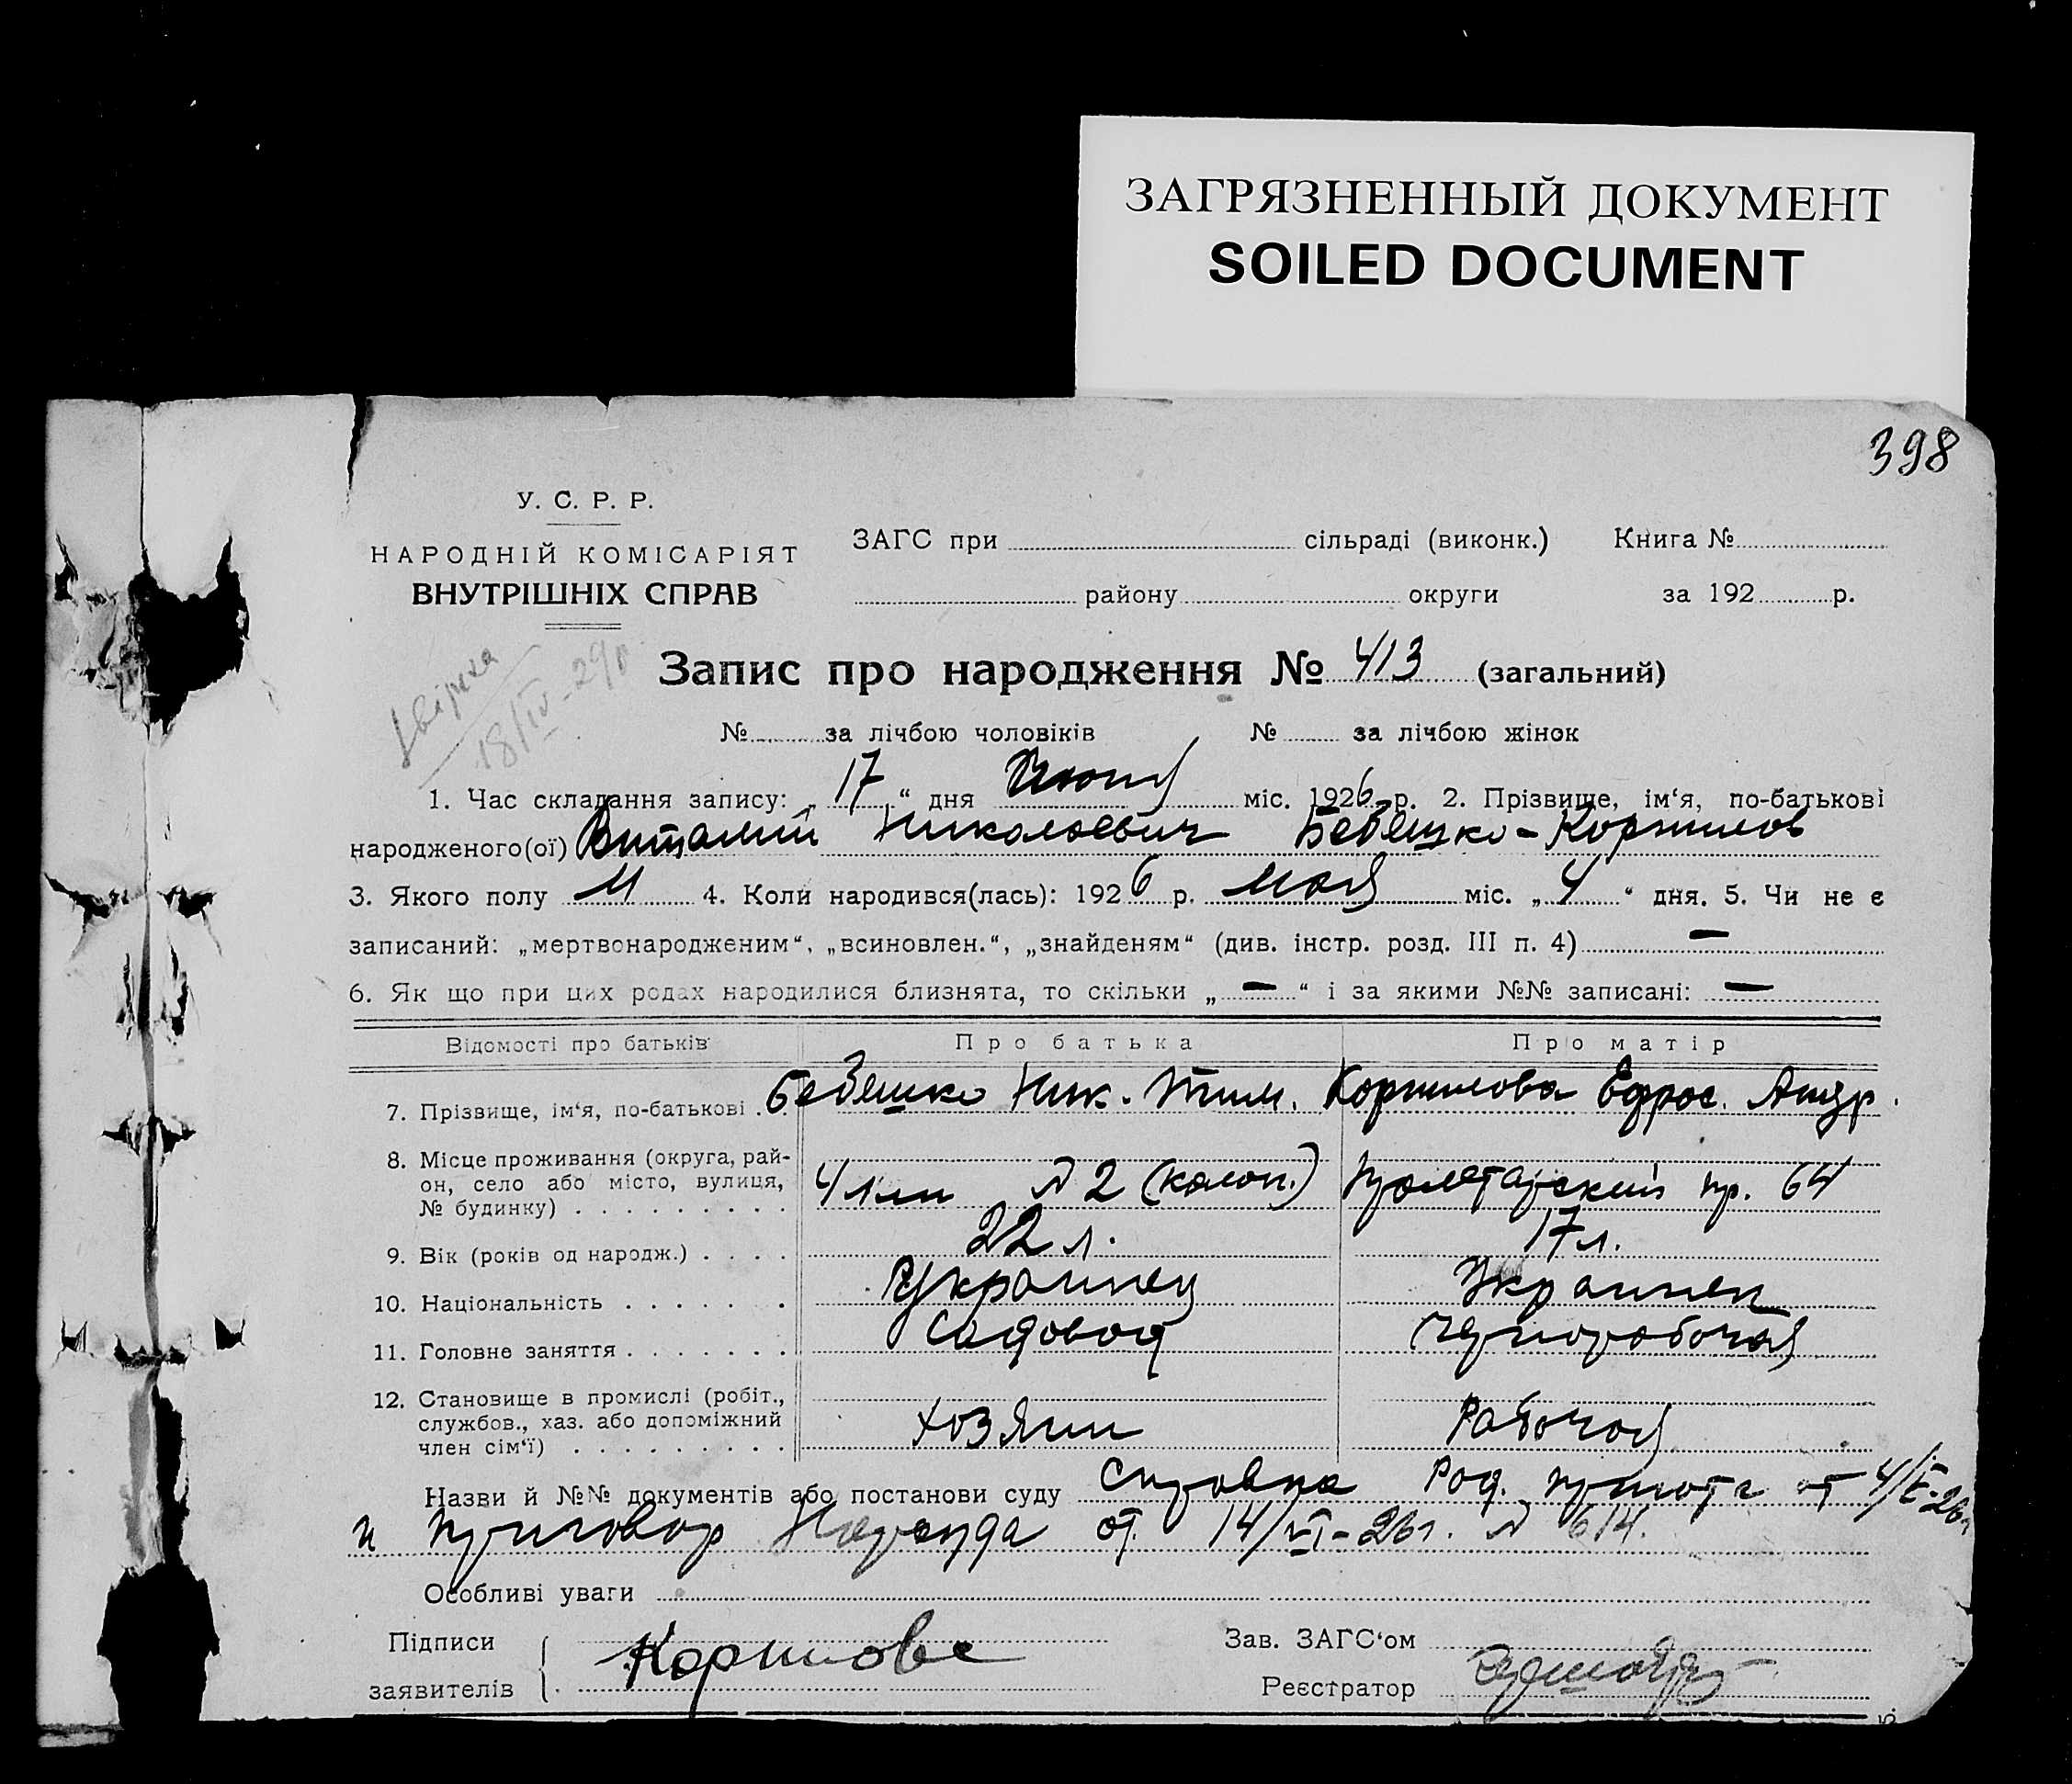 ЗАГРЯЗНЕННЫЙ ДОКУМЕНТ
SOILED DOCUMENT
398
У. С. Р. Р.
НАРОДНІЙ КОМІСАРІЯТ
ВНУТРІШНІХ СПРАВ
ЗАГС при сільраді (виконк.) Книга №
району округи за 192 р.
звірка
18/IV-29р
Запис про народження № 413 (загальний)
№ за лічбою чоловіків № за лічбою жінок
1. Час складання запису: „17“ дня Июня міс. 1926 р. 2. Прізвище, ім‘я, по-батькові
народженого(ої) Виталий Николаевич Бебешко-Коршилов
3. Якого полу М 4. Коли народився(лась): 1926 р. мая міс. „4“ дня. 5. Чи не є
записаний: „мертвонародженим“, „всиновлен.“, „знайденям“ (див. інстр. розд. III п. 4) —
6. Як що при цих родах народилися близнята, то скільки „—“ і за якими №№ записані: —
Відомості про батьків Про батька Про матір
7. Прізвище, ім‘я, по-батькові Бебешко Ник. Тим. Коршилова Ефрос. Андр.
8. Місце проживання (округа, рай-
он, село або місто, вулиця,
№ будинку) 4 лин № 2 (колон.) Пролетарский пр. 64
9. Вік (років од народж.) 22 л. 17 л.
10. Національність Украинец Украинец
11. Головне заняття Садовод Чернорабочая
12. Становище в промислі (робіт.,
службов., хаз. або допоміжний
член сім‘ї) хозяин Рабочая
Назви й №№ документів або постанови суду Справка Род. приюта от 4/V-26г
и приговор Нарсуда от 14/VI-26г. № 614.
Особливі уваги
Підписи
заявителів
Зав. ЗАГС‘ом
Реєстратор